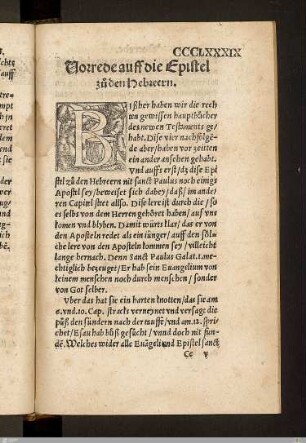 CCCLXXXIX
Vorrede auff die Epistel
zů den Hebreern.
Biß her haben wir die rech
ten gewissen hauptbücher
des newen Testaments ge/
habt. Dise vier nachfolgen/
de aber/haben vor zeitten
ein ander ansehen gehabt.
Vnd auffs erst/dz dise Epi
stel zů den Hebreern nit sanct Paulus noch einigs
Apostel sey/beweiset sich dabey/daß/im ande
ren Capitel steet also. Dise lere ist durch die/so
es selbs von dem Herren gehöret haben/auff vns
komen vnd blyben. Damit würt klar/das er von
den Aposteln redet als ein iünger/auff den söl
che lere von den Aposteln kommen sey/villeicht
lange hernach. Denn Sanct Paulus Galat.1.me
chtiglich bezeuget/Er hab sein Euangelium von
keinem menschen noch durch menschen/sonder
von Got selber.
Vber das hat sie ein harten knotten/das sie am
6.vnd.10.Cap. stracks verneynet vnd versagt die
půß den sündern nach der tauff/vnd am.12. spri
chet/Esau hab bůß gesůcht/vnnd doch nit fun-
dē. Welches wider alle Euāgeli vnd Epistel sanct
Cc v